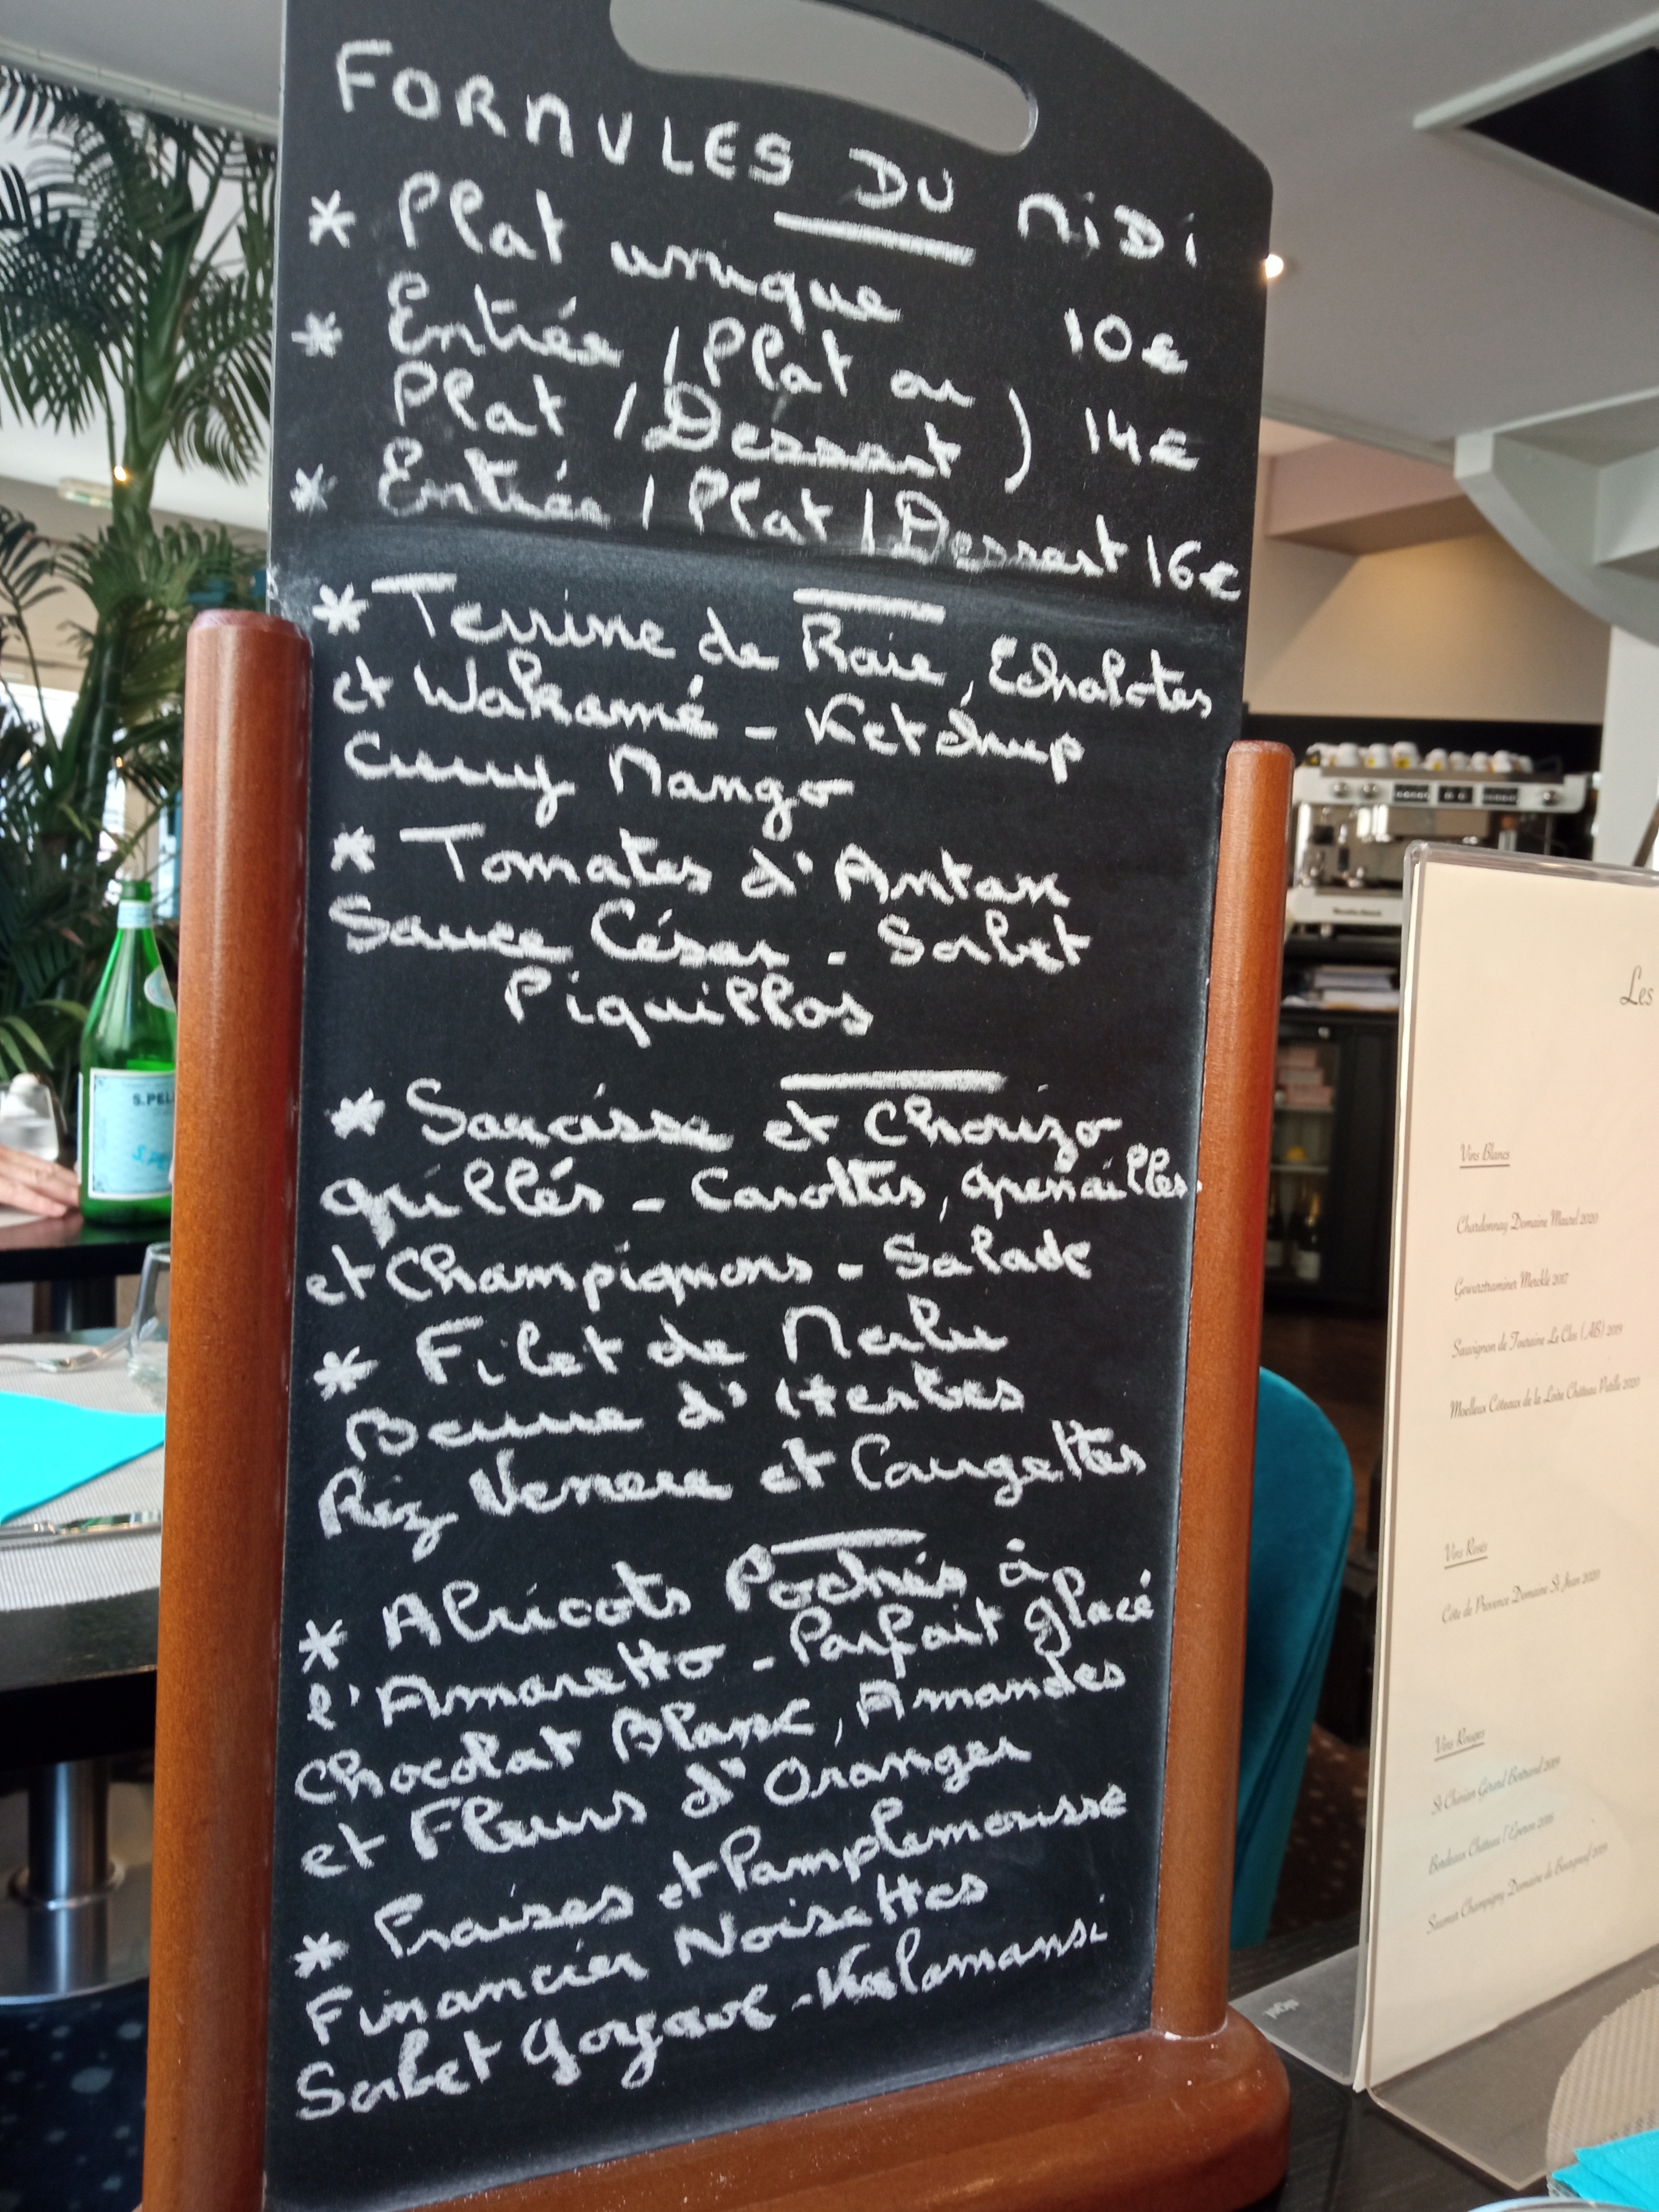 FORMULES DU MIDI
* Plat unique 10€
* Entrée / Plat ou
Plat / Dessert ) 14€
* Entrée / Plat / Dessert 16€
* Terrine de Raie, Echalotes
et Wakamé - Ketchup
Curry Mango
* Tomates d'Antan
Sauce César - Sorbet
Piquillos
* Saucisse et Chorizo
grillés - Carottes, grenailles
et Champignons - Salade
* Filet de Merlu
Beurre d'Herbes
Riz Venere et Courgettes
* Abricots Pochés à
l'Amaretto - Parfait glacé
Chocolat Blanc, Amandes
et Fleurs d'Oranger
* Fraises et Pamplemousse
Financier Noisettes
Sorbet Goyave - Kalamansi
S.PEL
Les
Vins Blancs
Chardonnay Domaine Maurel 2020
Gewurztraminer Merckle 2017
Sauvignon de Touraine Le Clos (AB) 2019
Moelleux Côteaux de la Loire Château Putille 2020
Vins Rosés
Côte de Provence Domaine St Jean 2020
Vins Rouges
St Chinian Gérard Bertrand 2019
Bordeaux Château l'Eperon 2016
Saumur Champigny Domaine de 2019